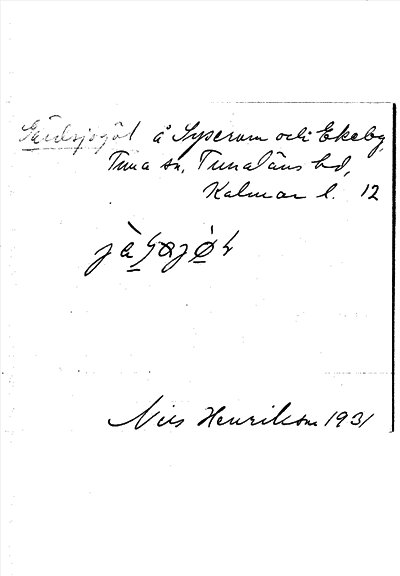 Gärdsjogöl å Syserum och Ekeby,
Tuna sn, Tunaläns hd,
Kalmar l. 12
Nils Henrikson 1931